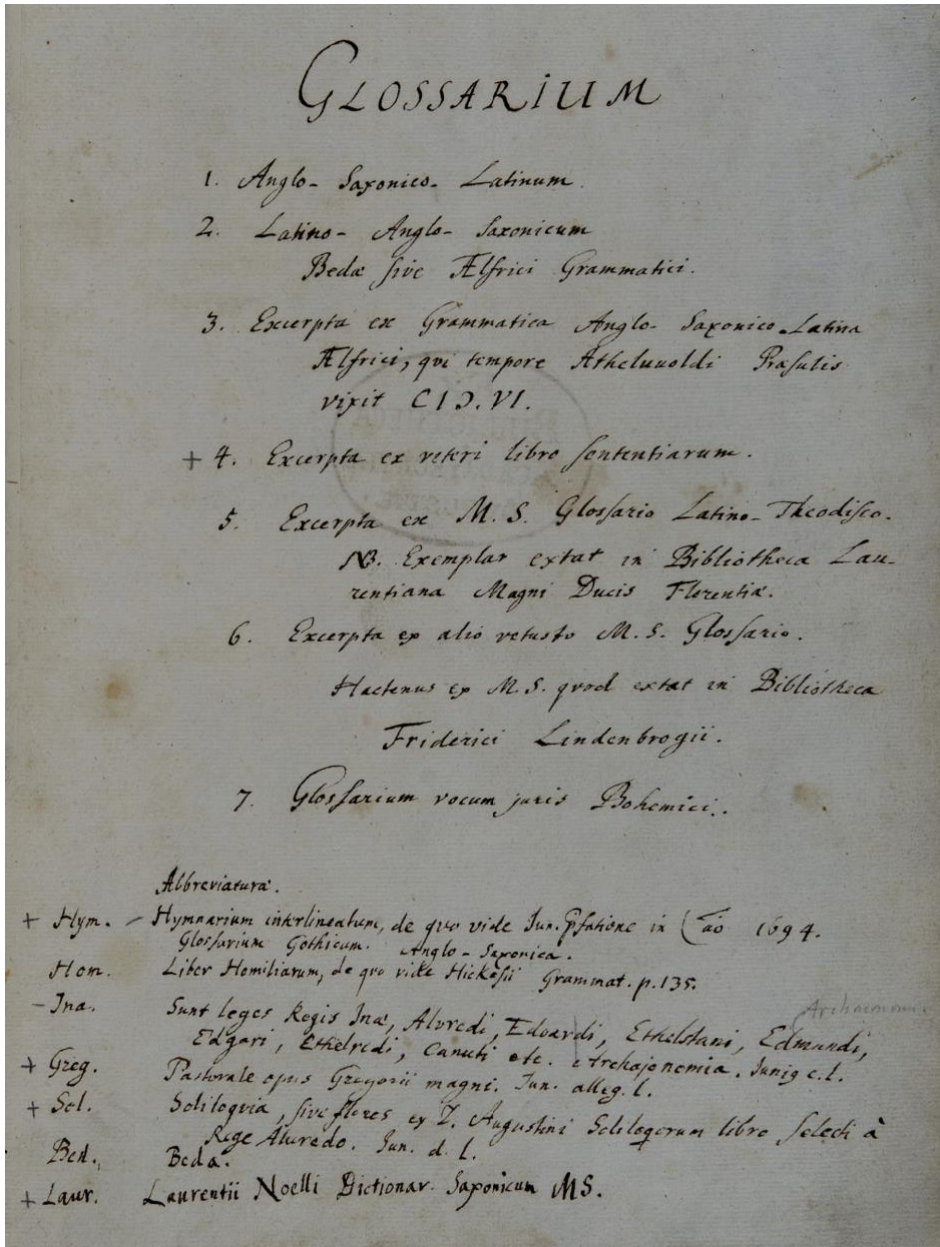 GLOSSARIUM
1. Anglo-Saxonico-Latinum.
2. Latino-Anglo-Saxonicum
Bedæ sive Ælfrici Grammatici.
3. Excerpta ex Grammatica Anglo-Saxonico-Latina
Ælfrici, qvi tempore Atheluuoldi Præsulis
vixit CIƆ.VI.
+ 4. Excerpta ex veteri libro sententiarum.
5. Excerpta ex M.S. Glossario Latino-Theodisco.
NB. Exemplar extat in Bibliotheca Lau-
rentiana Magni Ducis Florentiæ.
6. Excerpta ex alio vetusto M.S. Glossario.
Hactenus ex M.S. qvod extat in Bibliotheca
Friderici Lindenbrogii.
7. Glossarium vocum juris Bohemici.
Abbreviaturæ.
+ Hym. – Hymnarium interlineatum, de qvo vide Jun. in 1694.
Glossarium Gothicum. Anglo-Saxonica.
Hom. Liber Homiliarum, de qvo vide Hickesii Grammat. p. 135.
– Ina. Sunt leges Regis Inæ, Alvredi, Edoardi, Ethelstani, Edmundi,
Edgari, Ethelredi, Canuti etc. Archajonomia. Junig c.l.
+ Greg. Pastorale opus Gregorii magni. Jun. alleg. l.
+ Sol. Soliloqvia, sive flores ex D. Augustini Soliloqorum libro selecti à
Rege Aluredo. Jun. d. l.
Bed. Beda.
+ Laur. Laurentii Noelli Dictionar. Saxonicum MS.